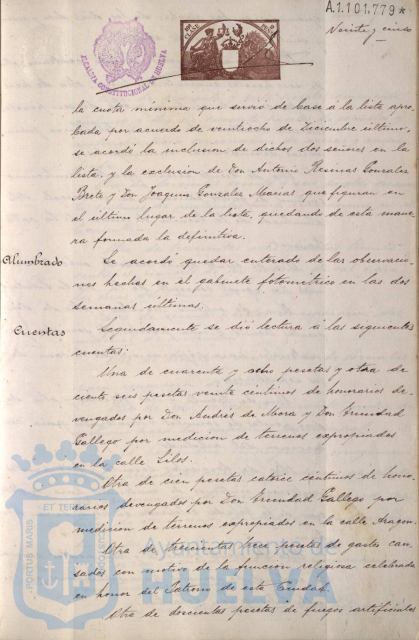 A.1.101.779*
Veinte y cinco
ALCALDIA CONSTITUCIONAL DE HUELVA
la cuota mínima que sirvió de base á la lista apro-
bada por acuerdo de veintiocho de Diciembre último
se acordó la inclusion de dichos dos señores en la
lista, y la exclusion de Don Antonio Gonzalez
y Don Joaquin Gonzalez Macias que figuran en
el último lugar de la lista, quedando de esta mane-
ra formada la definitiva.
Alumbrado
Se acordó quedar enterado de las observacio-
nes hechas en el gabinete fotométrico en las dos
semanas últimas.
Cuentas
Seguidamente se dió lectura á las siguientes
cuentas:
Una de cuarenta y ocho pesetas y otra de
ciento seis pesetas veinte céntimos de honorarios de-
vengados por Don Andrés de Mora y Don Trinidad
Gallego por medicion de terrenos expropiados
en la calle Silos.
Otra de cien pesetas catorce céntimos de hono-
rarios devengados por Don Trinidad Gallego por
medicion de terrenos expropiados en la calle Aragon.
Otra de trescientas trece pesetas de gastos cau-
sados con motivo de la funcion religiosa celebrada
en honor del Patrono de esta Ciudad.
Otra de doscientas pesetas de fuegos artificiales
PORTUS MARIS ET TERRAE
Ayuntamiento de
HUELVA